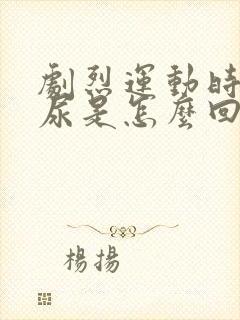 劇烈運動時
尿是怎麼回
楊揚